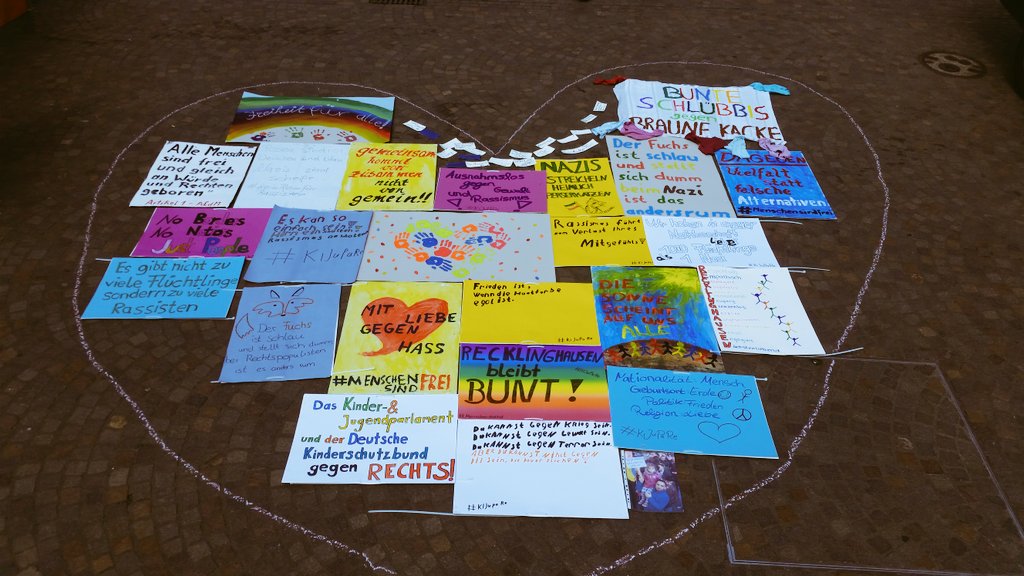 Freiheit für alle
BUNTE
SCHLÜBBIS
gegen
BRAUNE KACKE
Alle Menschen
sind frei
und gleich
an Würde
und Rechten
geboren
Artikel 1
gemeinsam
kommt von
zusammen
nicht
von
gemein!!
Ausnahmslos
gegen Gewalt
& Rassismus
NAZIS
STREICHELN
HEIMLICH
PERSERKATZEN
Der Fuchs
ist schlau
und stellt
sich dumm
beim Nazi
ist das
andersrum
Vielfalt statt
falsche
Alternativen
#Menschensindfrei
No Bries
No Ntos
Just People
Es kann so
einfach sein
# KiJuPaRe
Rassismus führt
zum Verlust Ihres
Mitgefühls!
Es gibt nicht zu
viele Flüchtlinge
sondern zu viele
Rassisten
Der Fuchs
ist Schlau
und stellt sich dumm
bei Rechtspopulisten
ist es anders um
MIT LIEBE
GEGEN
HASS
#MENSCHEN
SIND FREI
Frieden ist,
wenn die Hautfarbe
egal ist.
#KiJuPaRe
DIE
SONNE
SCHEINT FÜR
UNS
ALLE
RECKLINGHAUSEN
bleibt
BUNT!
Nationalität: Mensch
Geburtsort: Erde
Politik: Frieden
Religion: Liebe
#KiJuPaRe
Das Kinder-&
Jugendparlament
und der Deutsche
Kinderschutzbund
gegen RECHTS!
Du KANNST GEGEN KRIEG SEIN.
Du KANNST GEGEN GEWALT SEIN.
Du KANNST GEGEN TERROR SEIN.
ABER DU KANNST NICHT GEGEN
DIE SEIN, DIE DAVOR FLIEHEN!
#KiJuPaRe